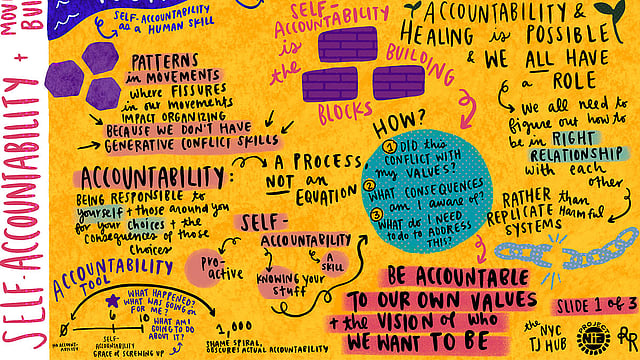 SELF-ACCOUNTABILITY +
SELF-ACCOUNTABILITY
as a HUMAN SKILL
PATTERNS
in MOVEMENTS
where FISSURES
in our movements
IMPACT ORGANIZING
BECAUSE WE DON'T HAVE
GENERATIVE CONFLICT SKILLS
SELF-
ACCOUNTABILITY
is
the
BUILDING
BLOCKS
ACCOUNTABILITY &
HEALING is POSSIBLE
& WE ALL HAVE
a ROLE
we all need to
figure out how to
be in RIGHT
RELATIONSHIP
with each
other
RATHER than
REPLICATE Harmful
SYSTEMS
ACCOUNTABILITY:
BEING RESPONSIBLE to
yourself + those around you
for your choices + the
consequences of those
choices
A PROCESS
NOT an
EQUATION
HOW?
1 DID this
CONFLICT WITH
my VALUES?
2 WHAT CONSEQUENCES
am I aware of?
3 WHAT do I NEED
to do to ADDRESS
THIS?
SELF-
ACCOUNTABILITY
PRO-
ACTIVE
KNOWING your
stuff
A
SKILL
ACCOUNTABILITY
TOOL
WHAT HAPPENED?
WHAT WAS GOING ON
FOR ME?
WHAT AM I
GOING TO DO
ABOUT IT?
0
10
SELF-
ACCOUNTABILITY
GRACE of SCREWING UP
1,000
SHAME SPIRAL,
OBSCURES ACTUAL ACCOUNTABILITY
BE ACCOUNTABLE
TO OUR OWN VALUES
+ the VISION of WHO
WE WANT TO BE
SLIDE 1 of 3
the NYC
TJ HUB
PROJECT
NIA